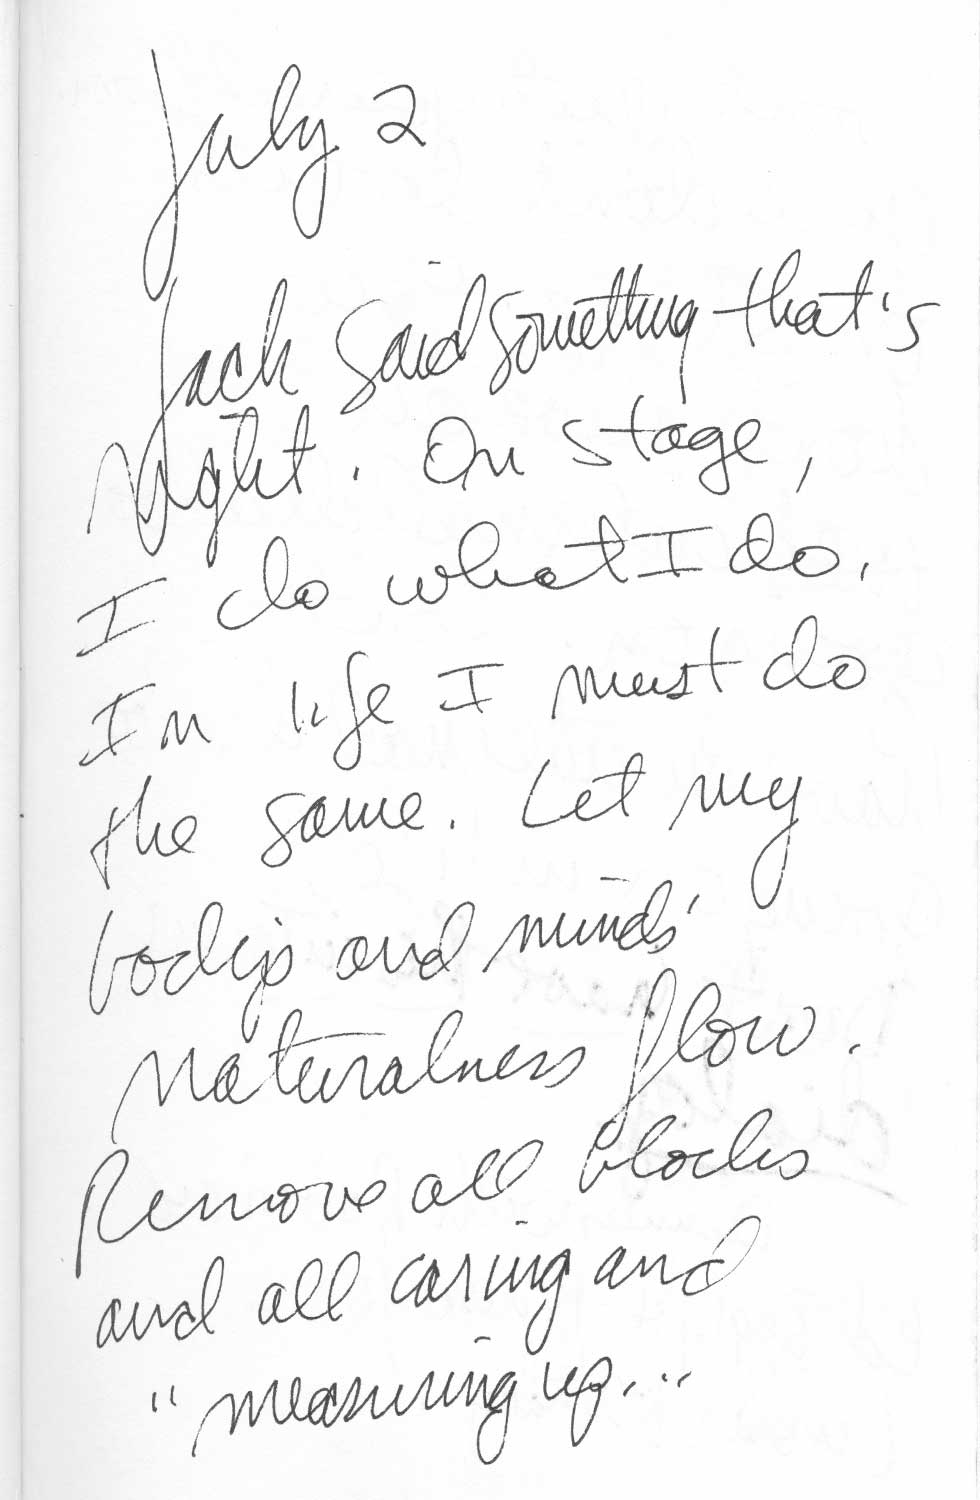 July 2
Jack said something that's
right. On stage,
I do what I do.
In life I must do
the same. Let my
body's and minds'
naturalness flow.
Remove all blocks
and all caring and
"measuring up..."